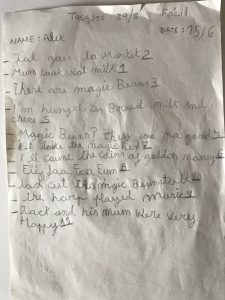 Tasques 29/5 Fàcil
NAME: Alex DATE: 15/6
- Jack goes to Market 2
- Mum milk 1
- There are magic Beans 3
- I'm hungry Bread milk and
5
- Magic Beans? They are no good 4
- I'll take the magic hen 7
- I'll count the coins of golden money 6
- Eii faa 8
- Jack cut the magic Beanstalk 10
- the harp played 9
- Jack and his mum were very
Happy 11